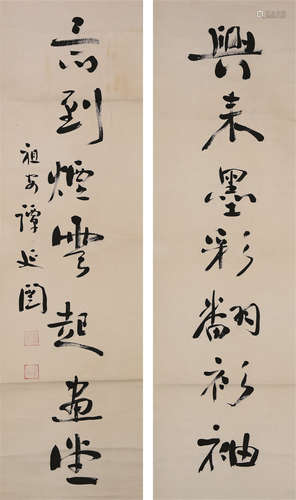 興来墨彩翻衫袖
到煙雲起畫堂
祖安譚延闓